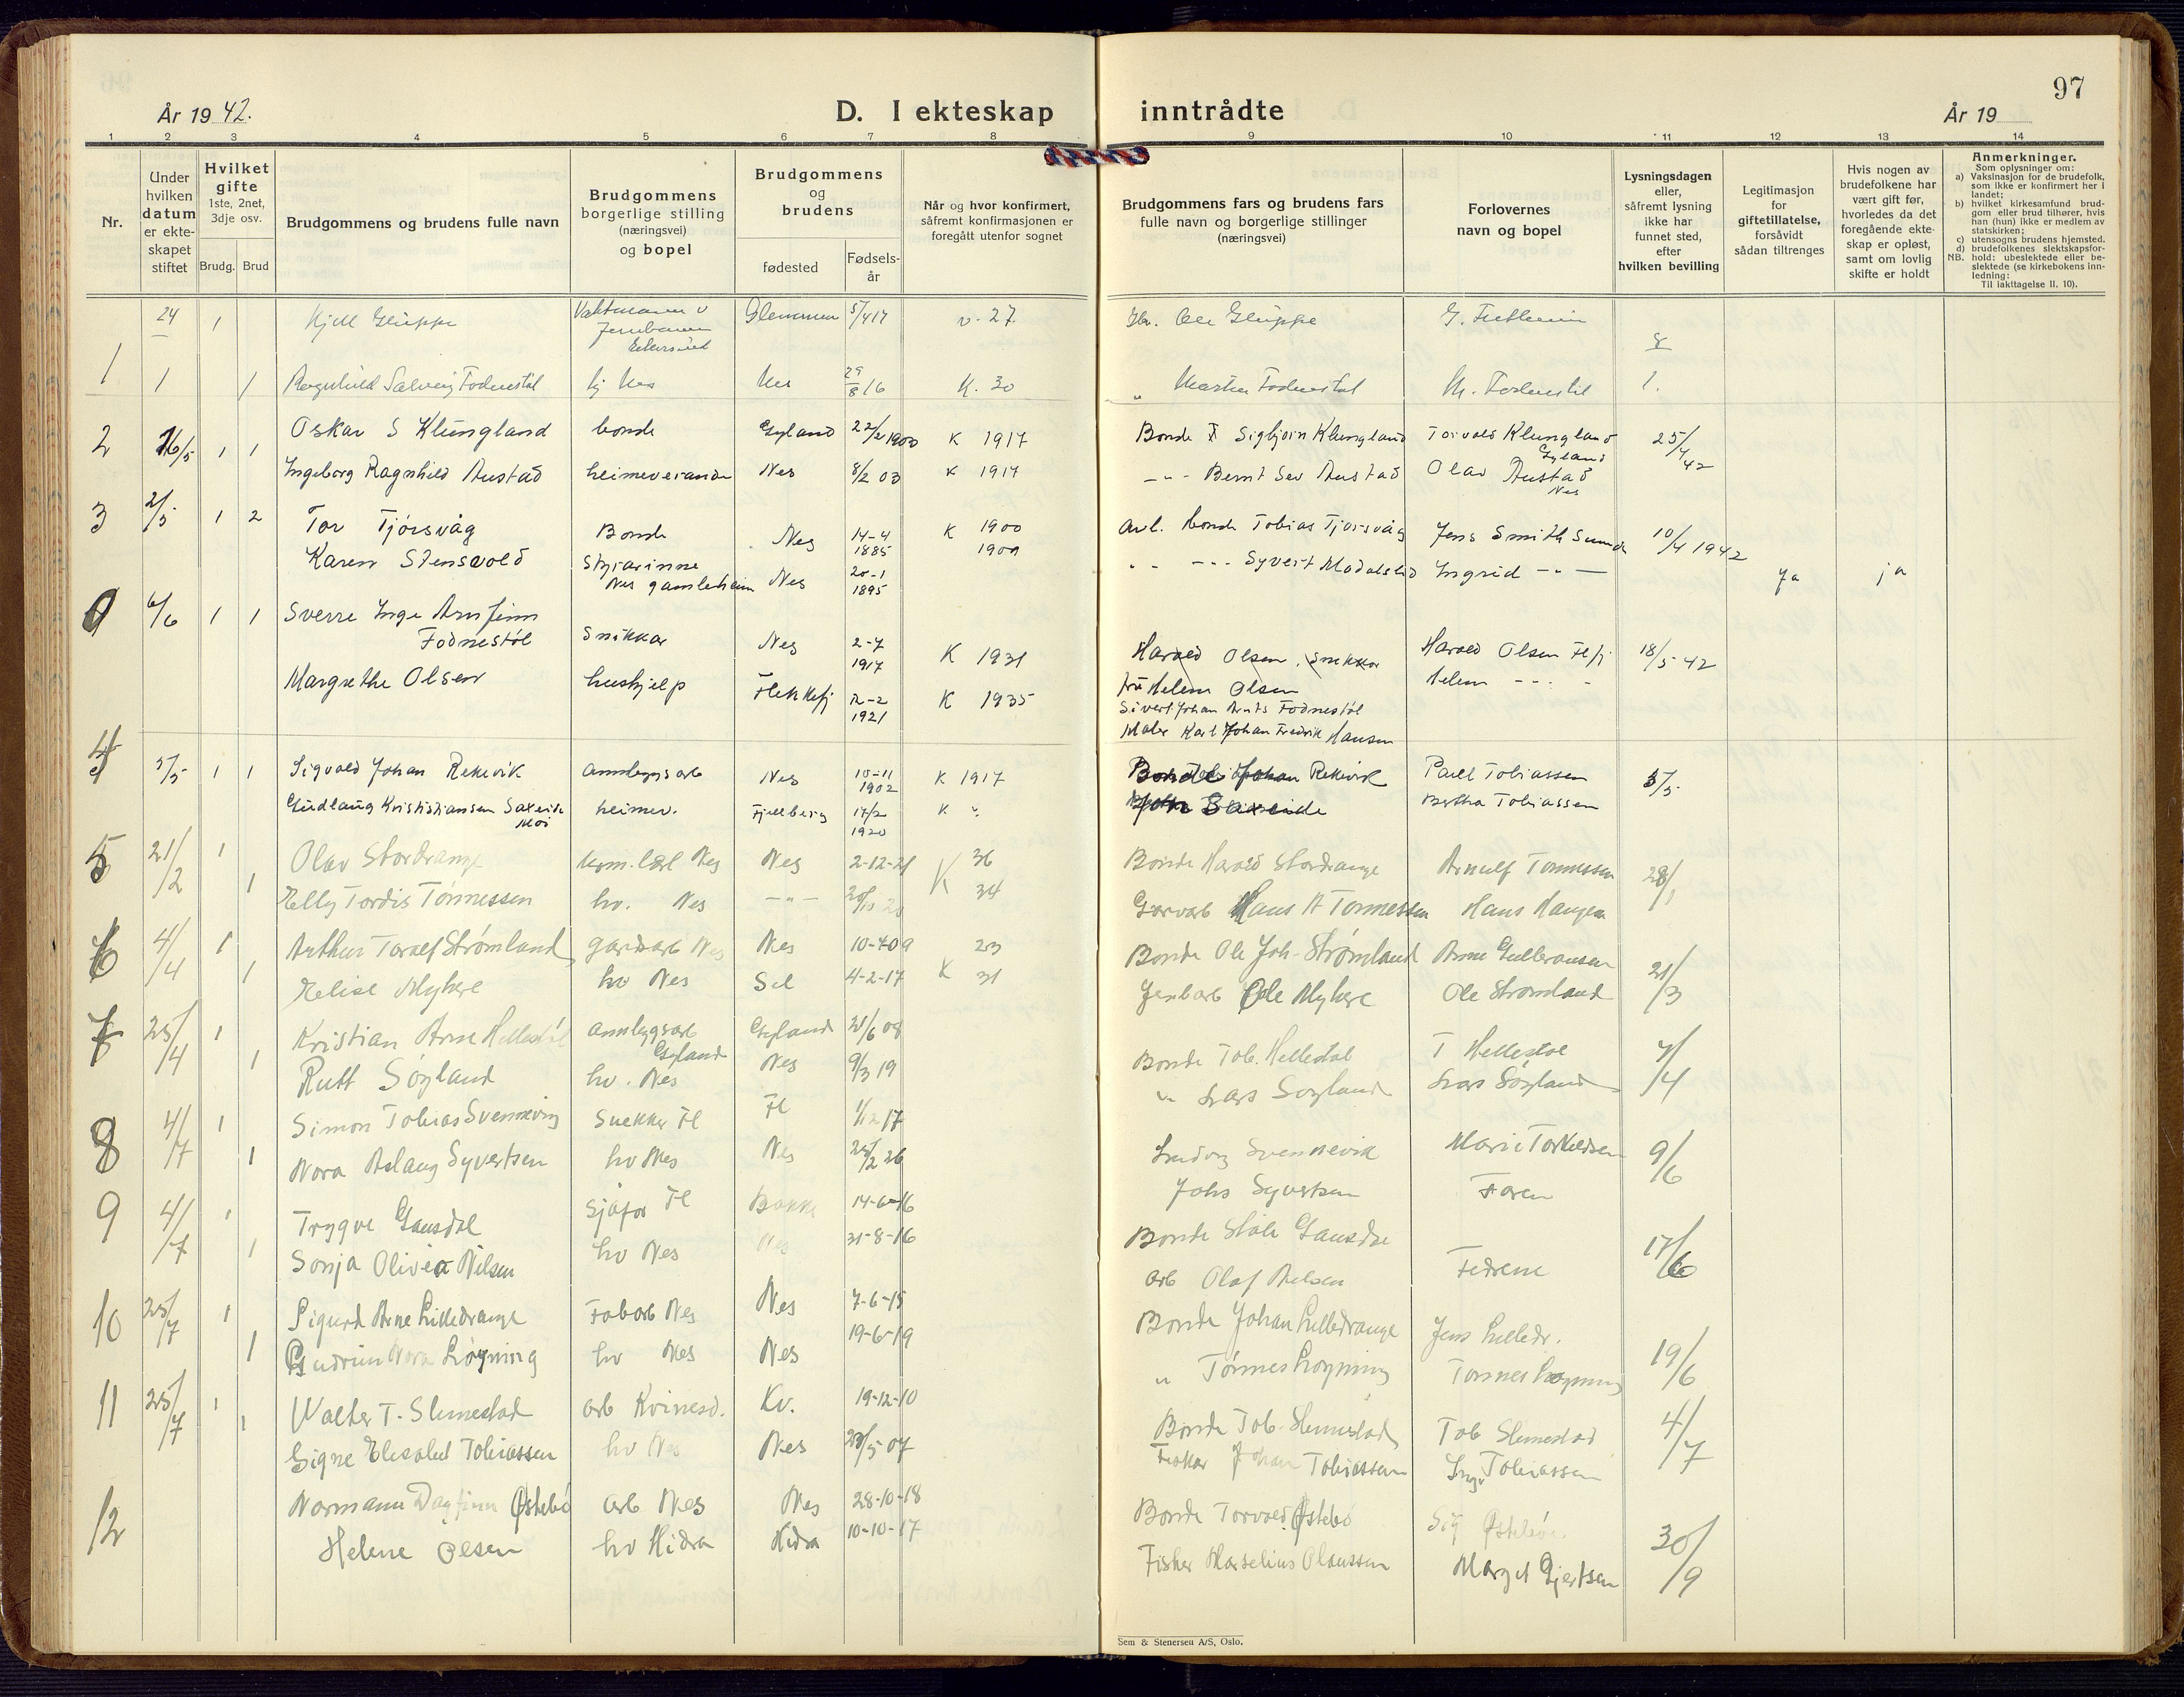 97
År 19 42.
D. I ekteskap inntrådte
År 19
1 2 3 4 5 6 7 8 9 10 11 12 13 14
Nr.
Under hvilken datum er ekte-skapet stiftet
Hvilket gifte 1ste, 2net, 3dje osv.
Brudg. Brud
Brudgommens og brudens fulle navn
Brudgommens borgerlige stilling (næringsvei) og bopel
Brudgommens og brudens
fødested
Fødsels-år
Når og hvor konfirmert, såfremt konfirmasjonen er foregått utenfor sognet
Brudgommens fars og brudens fars fulle navn og borgerlige stillinger (næringsvei)
Forlovernes navn og bopel
Lysningsdagen eller, såfremt lysning ikke har funnet sted, efter hvilken bevilling
Legitimasjon for giftetillatelse, forsåvidt sådan tiltrenges
Hvis nogen av brudefolkene har vært gift før, hvorledes da det foregående ekte-skap er opløst, samt om lovlig skifte er holdt
Anmerkninger.
Som oplysninger om:
a) Vaksinasjon for de brudefolk, som ikke er konfirmert her i landet;
b) hvilket kirkesamfund brud-gom eller brud tilhører, hvis han (hun) ikke er medlem av statskirken;
c) utensogns brudens hjemsted.
d) brudefolkenes slektskapsfor-hold: ubeslektede eller be-slektede (se kirkebokens inn-ledning:
NB. Til iakttagelse II. 10).
24 1 Kjell Gluppe Glemmen 5/4 17 v. 27. Ole Gluppe
Jernbanen
1 1 1 Ragnhild Solveig Fodnestøl hj Nes Nes 29/8 16 K. 30 " Martin Fodnestøl M. Fodnestøl 1.
2 16/5 1 1 Oskar S Klungland bonde Gyland 22/2 1900 K 1917 Bonde Sigbjørn Klungland Torvald Klungland Gyland 25/4 42
Ingeborg Ragnhild Austad heimeverande Nes 8/2 03 K 1917 -"- Bernt Sev Austad Olav Austad Nes
3 2/5 1 2 Tor Tjørsvåg Bonde Nes 14-4 1885 K 1900 Bonde Tobias Tjorsvåg Jens Smith Sunde 10/4 1942
Karen Stensvold Styrarinne Nes gamleheim Nes 20-1 1895 1909 " " -"- Syvert Modalsli Ingrid -"- ja ja
6/6 1 1 Sverre Inge Arnfinn Fodnestøl Snikkar Nes 2-7 1917 K 1931 Harald Olsen, Snekker Harald Olsen Flfj 18/5 42
Margrethe Olsen hushjelp Flekkefj 12-2 1921 K 1935 fru Helene Olsen Helene -"-
Sivert Johan Arnts Fodnestøl
Maler Karl Johan Fredrik Hansen
4 3/5 1 1 Sigvald Johan Rekevik annleggsarb Nes 10-11 1902 K 1917 Bonde Johan Rekevik Paul Tobiassen 3/5
Gudlaug Kristiansen Saxeide heimev. Fjellberg 17/2 1920 K " Saxeide Bertha Tobiassen
5 21/2 1 Olav Stordrange Nes Nes 2-12-21 K 36 Bonde Harald Stordrange Arnulf Tønnessen 28/1
1 Elly Tordis Tønnessen hv. Nes -"- 34 Garvarb Hans A Tønnessen Hans Haugen
6 4/4 1 Arthur Toralf Strømland gardsarb Nes Nes 10-4 09 23 Bonde Ole Joh. Strømland Arne Gulbransen 21/3
1 Elise Myhre hv Nes Sel 4-2-17 K 31 Jernbarb Ole Myhre Ole Strømland
7 25/4 1 Kristian Arne Hellestøl annleggsarb Gyland Gyland 21/6 08 Bonde Tob. Hellestøl T Hellestøl 7/4
1 Rutt Søyland hv. Nes Nes 9/3 19 " Lars Søyland Lars Søyland
8 4/7 1 Simon Tobias Svennevig Snekker Fl Fl 1/12 17 Ludvig Svennevik Marie Torkildsen 9/6
1 Nora Aslaug Syvertsen hv Nes Nes 25/2 26 Johs Syvertsen Faren
9 4/7 1 Trygve Gausdal Sjåfør Fl Bakke 14-6-16 Bonde Ståle Gausdal 17/6
1 Sonja Olivia Nilsen hv Nes Nes 31-8-16 arb Olaf Nelsen Fedrene
10 25/7 1 Sigurd Arne Lilledrange Fabarb Nes Nes 7-6-15 Bonde Johan Lilledrange Jens Lilledr. 19/6
1 Gudrun Nora Løyning hv Nes Nes 19-6-19 " Tønnes Løyning Tønnes Løyning
11 25/7 1 Walter T. Slimestad arb Kvinesd. Kv. 19-12-10 Bonde Tob. Slimestad Tob Slimestad 4/7
1 Signe Elisabet Tobiassen hv Nes Nes 23/5 07 Fisker Johan Tobiassen Inga Tobiassen
12 Normann Dagfinn Østebø arb Nes Nes 28-10-18 Bonde Torvald Østebø Sig Østebø 30/9
Helene Olsen hv Hidra Hidra 10-10-17 Fisker Marselius Olaussen Margit Gjertsen
Sem & Stenersen A/S, Oslo.